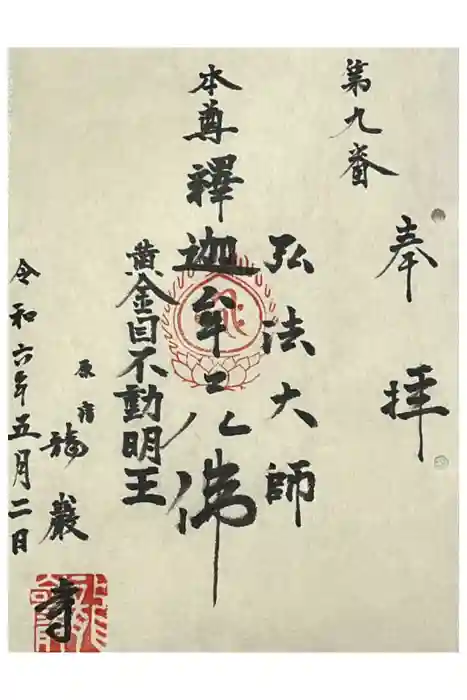 奉拝
第九番
弘法大師
本尊釋迦牟尼仏
黄金目不動明王
原宿
龍巖寺
令和六年五月二日